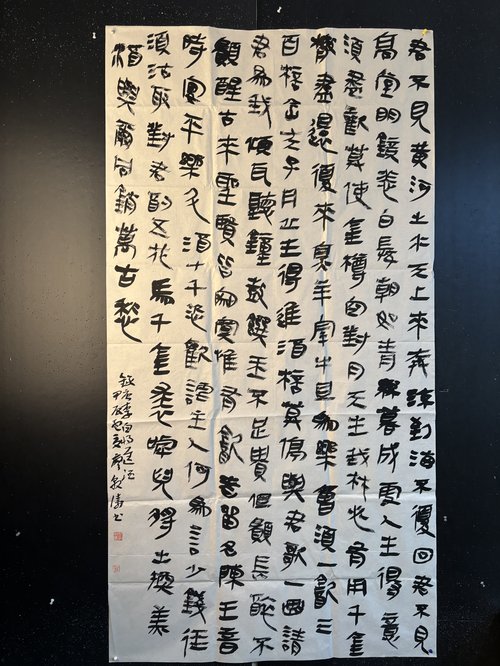 君不見黃河之水天上來奔流到海不復回君不見
高堂明鏡悲白髮朝如青絲暮成雪人生得意
須盡歡莫使金樽空對月天生我材必有用千金
散盡還復來烹羊宰牛且為樂會須一飲三
百杯岑夫子丹丘生將進酒杯莫停與君歌一曲請
君為我傾耳聽鐘鼓饌玉不足貴但願長醉不
願醒古來聖賢皆寂寞惟有飲者留名陳王昔
時宴平樂斗酒十千恣歡謔主人何為言少錢徑
須沽取對君酌五花馬千金裘呼兒將出換美
酒與爾同銷萬古愁
錄唐李白將進酒
甲辰夏書